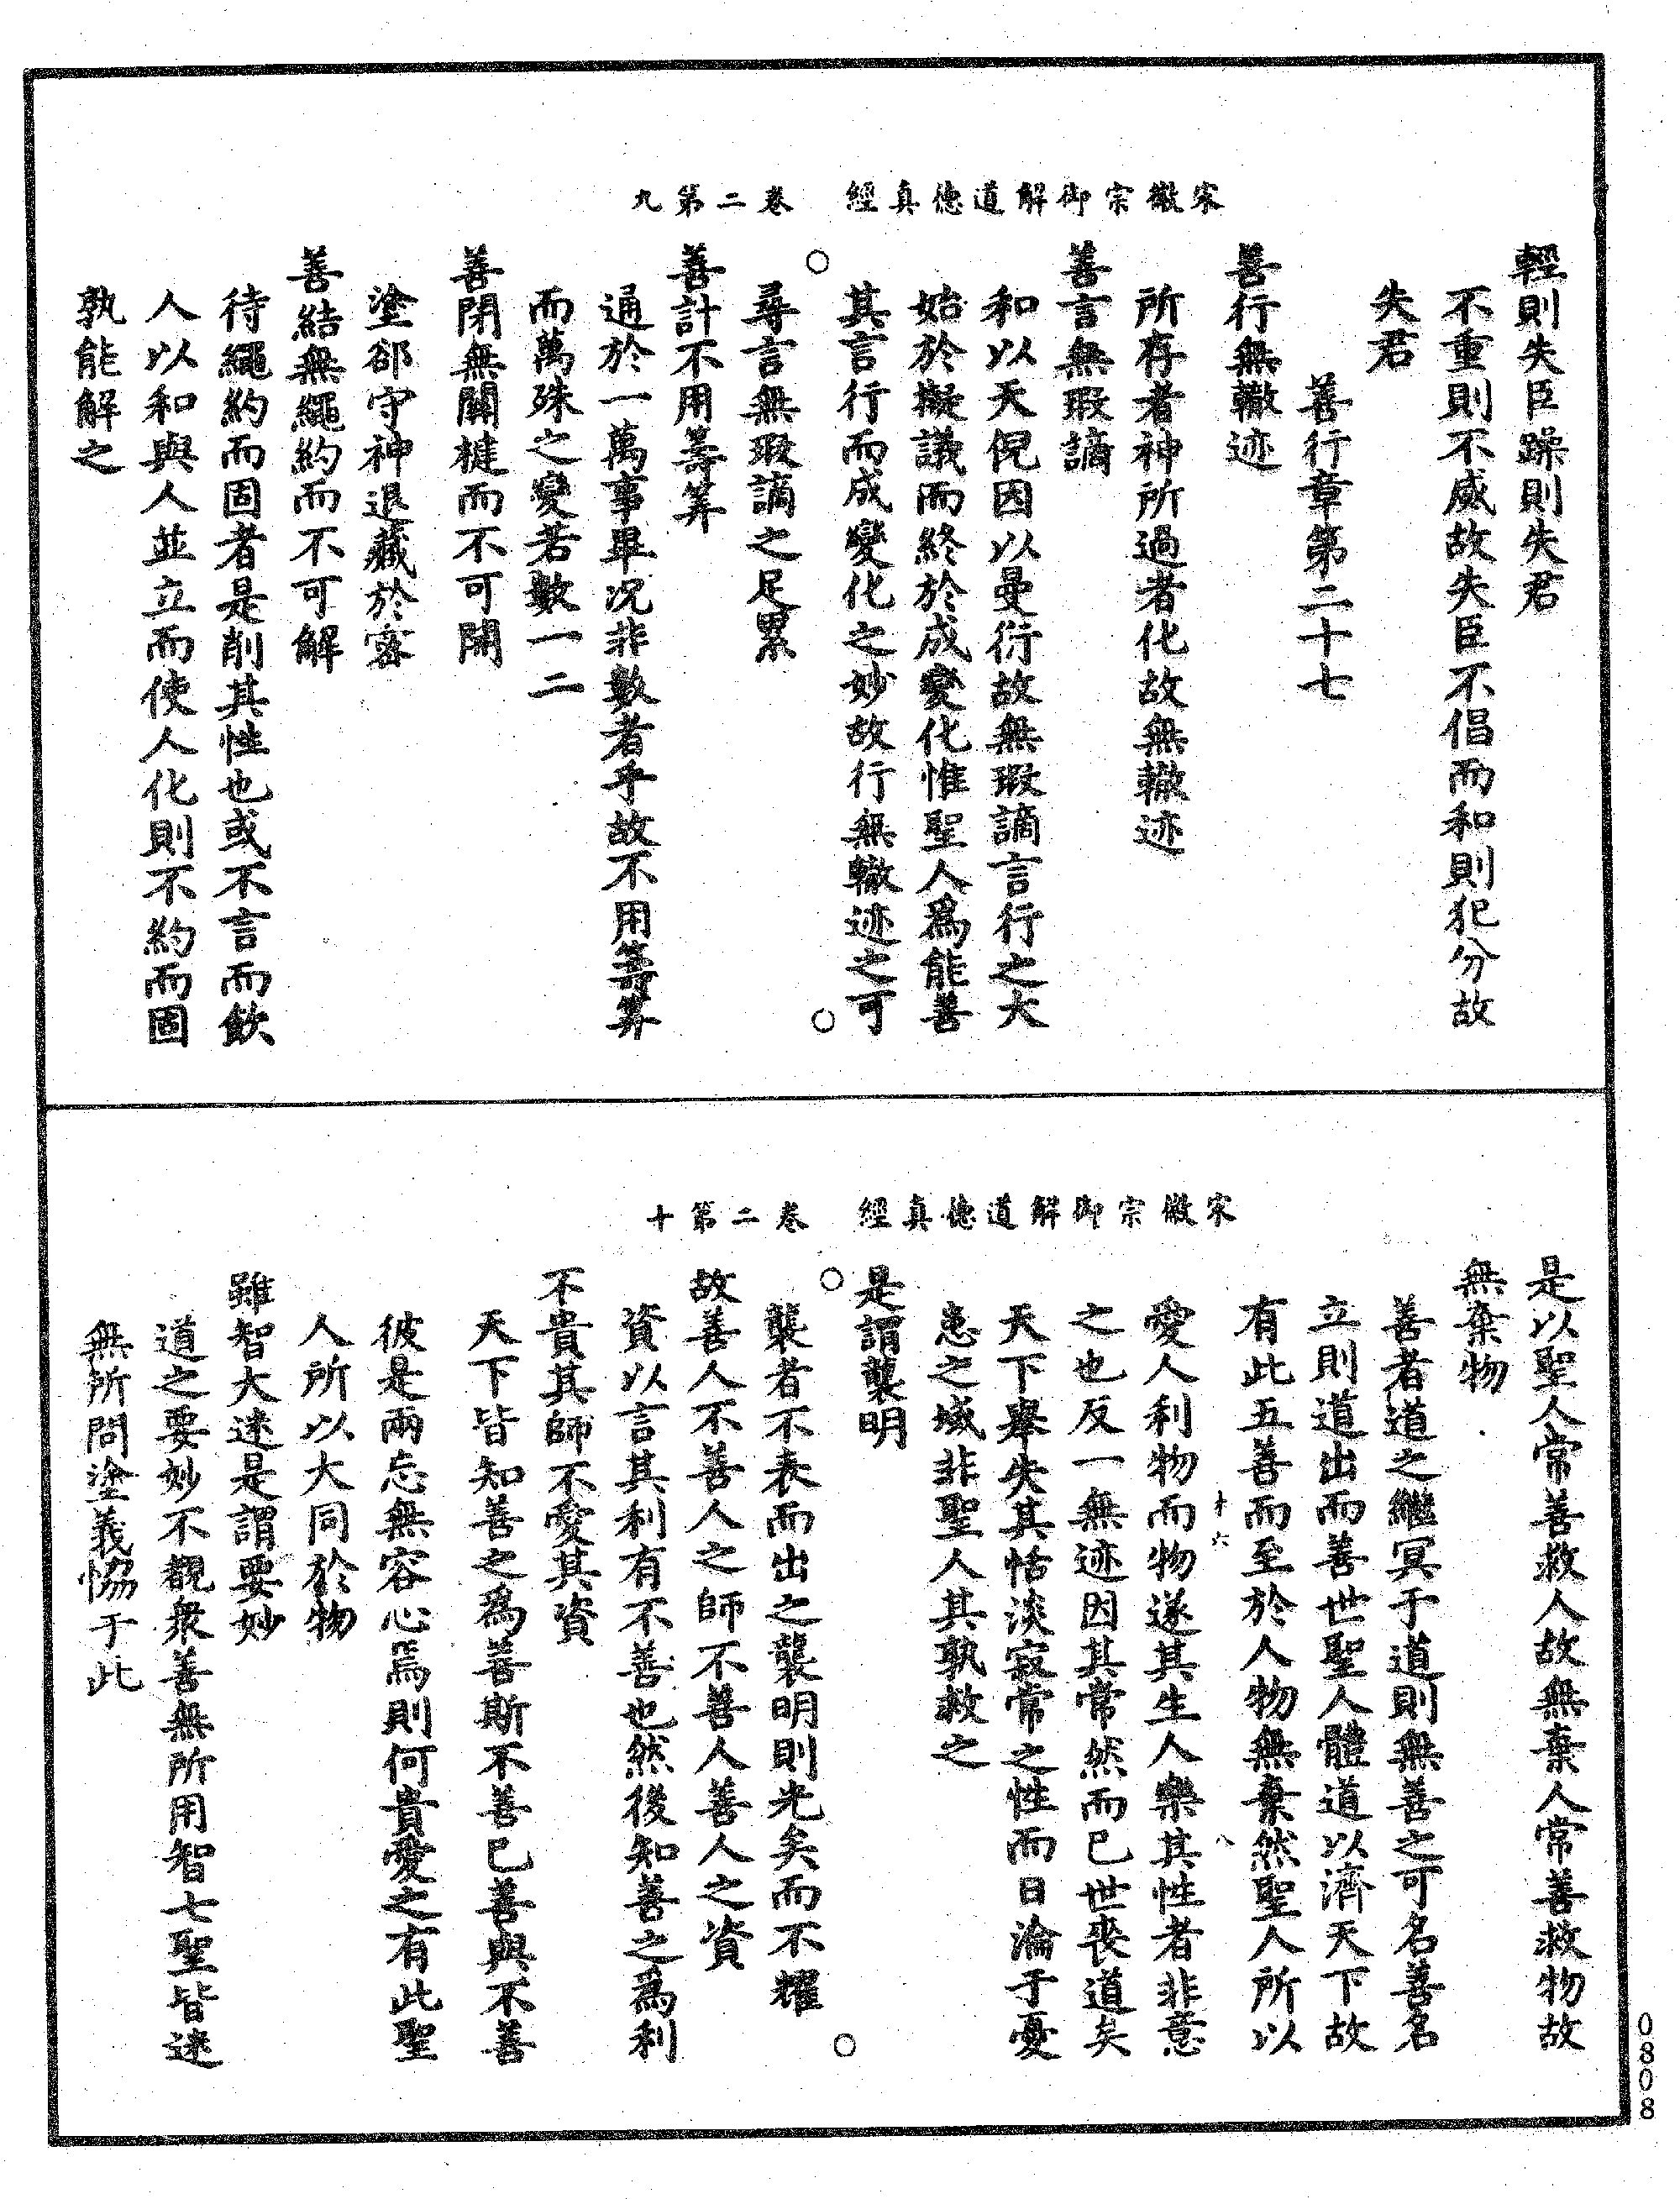 宋徽宗御解道德真經　卷二第九
輕則失臣躁則失君
不重則不威故失臣不倡而和則犯分故
失君
善行章第二十七
善行無轍迹
所存者神所過者化故無轍迹
善言無瑕謫
和以天倪因以曼衍故無瑕謫言行之大
始於擬議而終於成變化惟聖人爲能善
其言行而成變化之妙故行無轍迹之可
尋言無瑕謫之足累
善計不用籌筭
通於一萬事畢况非數者乎故不用籌筭
而萬殊之變若數一二
善閉無關楗而不可開
塗郤守神退藏於密
善結無繩約而不可解
待繩約而固者是削其性也或不言而飲
人以和與人並立而使人化則不約而固
孰能解之
宋徽宗御解道德真經　卷二第十
是以聖人常善救人故無棄人常善救物故
無棄物
善者道之繼冥于道則無善之可名善名
立則道出而善世聖人體道以濟天下故
有此五善而至於人物無棄然聖人所以
才六　八
愛人利物而物遂其生人樂其性者非意
之也反一無迹因其常然而已世喪道矣
天下舉失其恬淡寂常之性而日淪于憂
患之域非聖人其孰救之
是謂襲明
襲者不表而出之襲明則光矣而不耀
故善人不善人之師不善人善人之資
資以言其利有不善也然後知善之爲利
不貴其師不愛其資
天下皆知善之爲善斯不善已善與不善
彼是兩忘無容心焉則何貴愛之有此聖
人所以大同於物
雖智大迷是謂要妙
道之要妙不覩衆善無所用智七聖皆迷
無所問塗義恊于此
0808